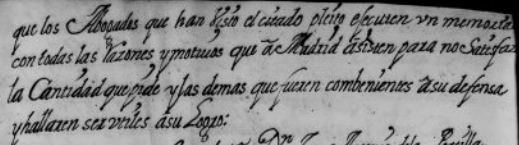 que los Abogados que han visto el citado pleito ejecuten vn memoria
con todas las Razones y motivos que a Madrid asisten para no Satisfaz
la Cantidad que pide y las demas que fueren combenientes a su defensa
y hallaren ser vtiles a su Logro: